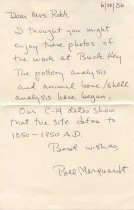 6/30/86
Dear Mrs. Robb,
I thought you might
enjoy these photos of
the work at Buck Key.
The pottery analysis
and animal bone/shell
analysis have begun.
Our C-14 dates show
that the site dates to
1050-1350 A.D.
Best wishes,
Bill Marquardt